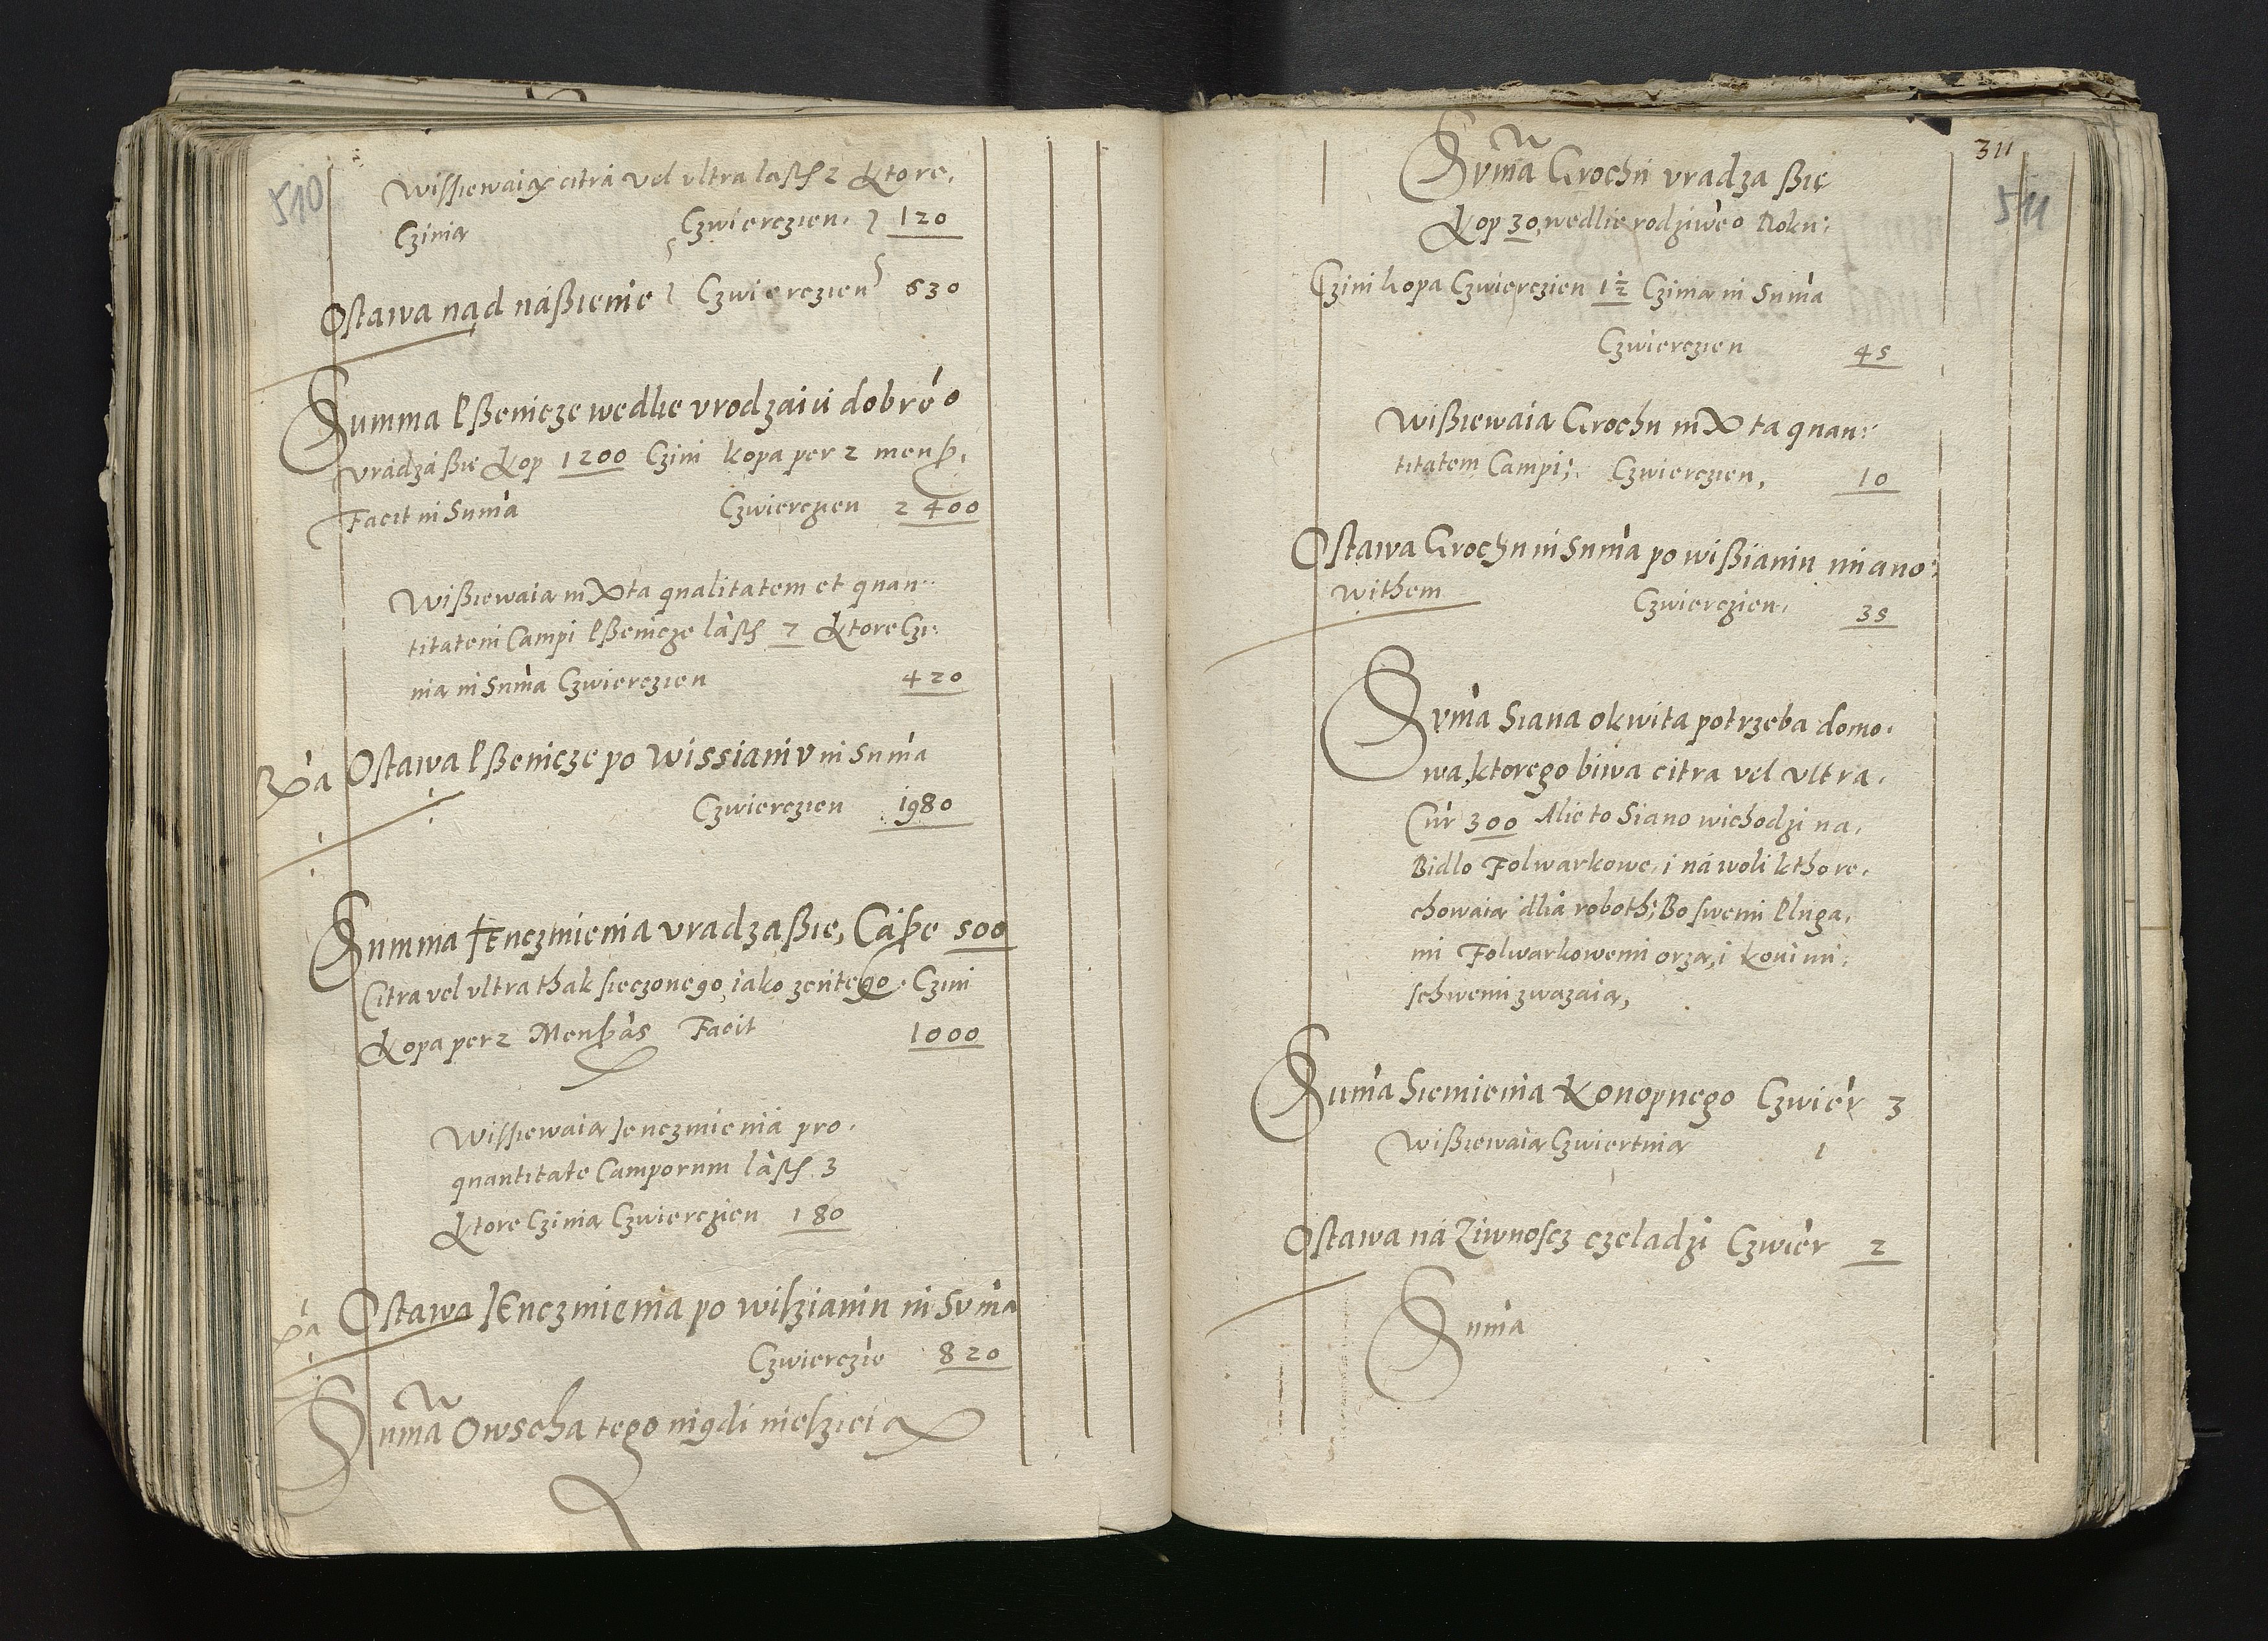 510
Wissiewaią citra vel vltra lasth 2 Ktore,
Czinią Czwierczien. 120
Ostawa nąd náßienie Czwierczien 630
Summa Pßenicze wedlie vrodzaiu dobre˚o
vrádzá ßie Kop 1200 Czini kopa per 2 mens.
Facit in Suma Czwierczien 2400
Wißiewaią iuxta qualitatem et quan:
titatem Campi Pßenicze lásth 7 Ktore Czi:
nią in Suma Czwierczien 420
Ostawa Pßenicze po wissianiv in Suma
Czwierczien 1980
Summa Jęnczmienia vradza ßie, Cape 500
Citra vel vltra thak sieczonego, iako zentego. Czini
Kopa per 2 Mensas Facit 1000
Wissiewaią Jenczmieniá pro.
quantitate Camporum lásth 3
Ktore Czinią Czwierczien 180
Ostawa JEnczmienia po wiszianiu in Suma
Czwierczie 820
Suma Owscha tego nigdi nieszieią
311
511
Svma Grochu vradza ßię
Kop 30, wedlie rodziwe˚o Roku:
Czini kopa Czwierczien 1½ Czinią in Suma
Czwierczien 45
Wißiewaią Grochu iuxta quan:
titatem Campi; Czwierczien, 10
Ostawa Grochu in Suma po wißianiu miano:
withem Czwierczien. 35
Svma Siana okwita potrzeba domo.
wa, ktorego biwa citra vel vltra.
Cur 300 Alie to Siano wichodzi na,
Bidlo Folwarkowe, i ná woli kthore.
chowaią dlia roboth; Bo swemi Pluga,
mi Folwarkowemi orzą, i Koními.
schwemi zwazaią,
Suma Siemienia Konopnego Czwier 3
Wißiewaią Czwiertnią 1
Ostawa ná Ziwnoscz czeladzi Czwier 2
Suma